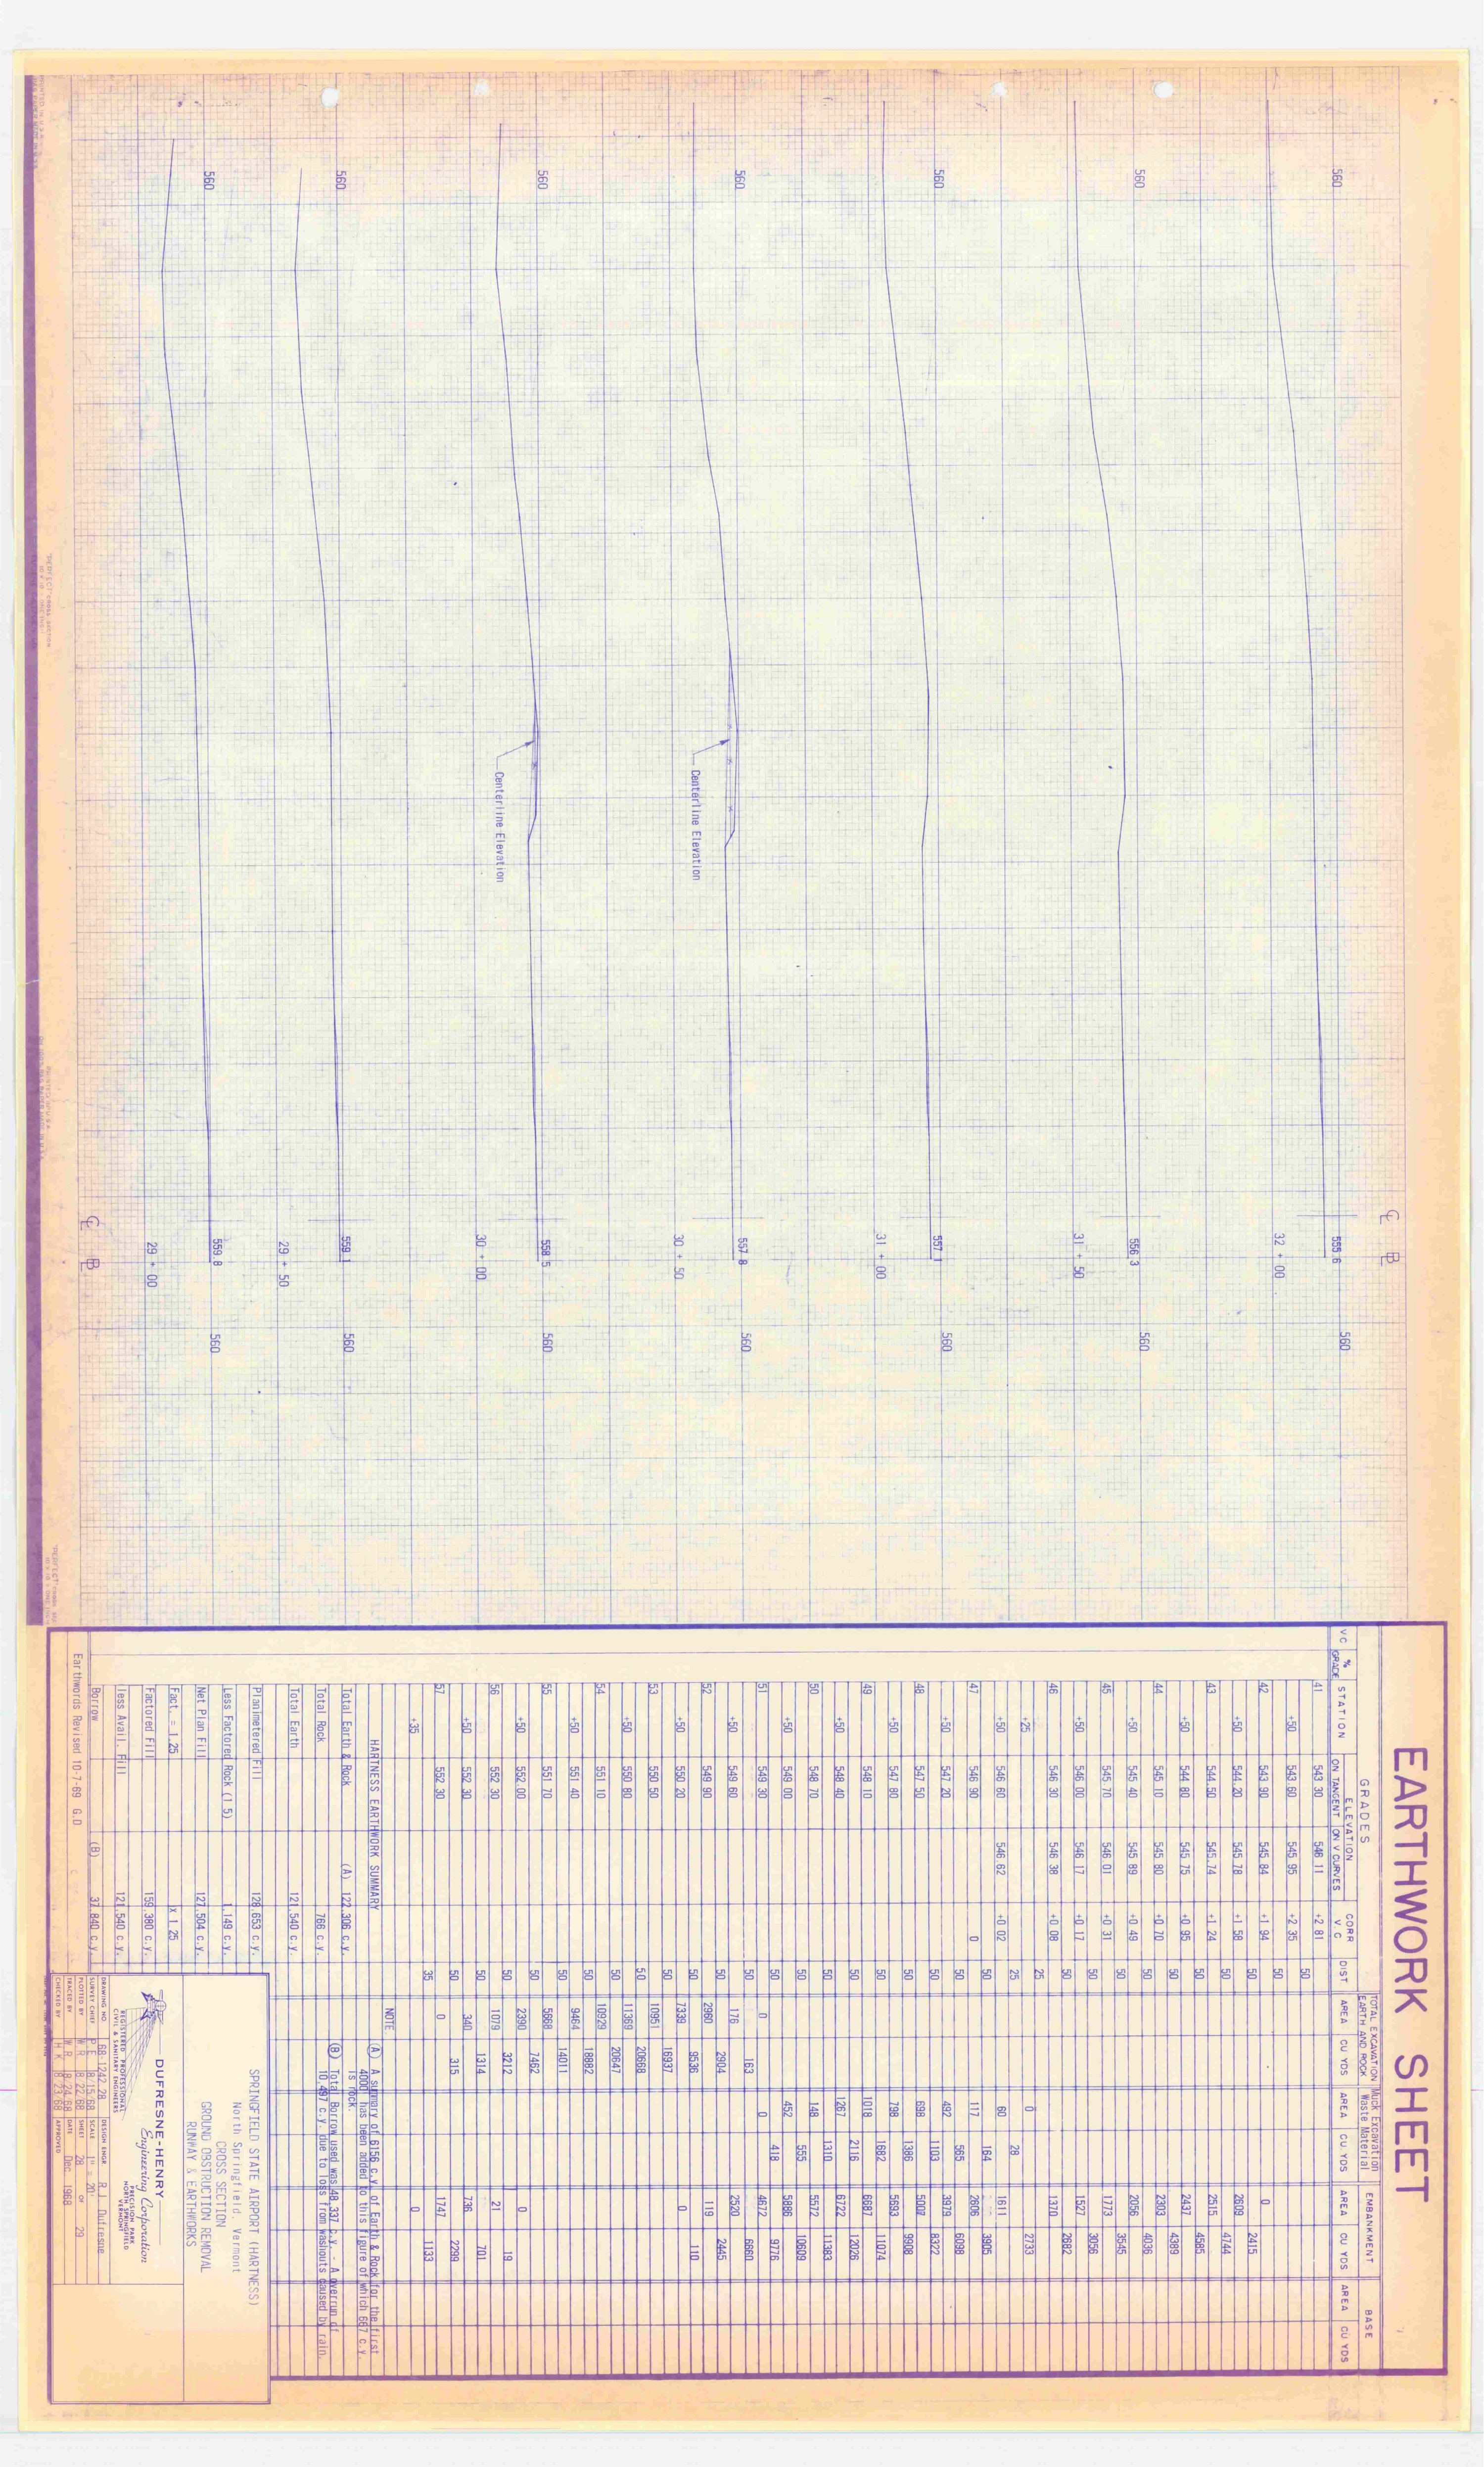 EARTHWORK SHEET
GRADES
TOTAL EXCAVATION EARTH AND ROCK
Muck Excavation Waste Material
EMBANKMENT
BASE
VC
% GRADE
STATION
ELEVATION
ON TANGENT
ON V CURVES
CORR V C
DIST
AREA CU YDS AREA CU YDS AREA CU YDS AREA CU YDS
41 543 30 546 11 +2 81
50
+50 543 60 545 95 +2 35
50
42 543 90 545 84 +1 94 0
50 2415
+50 544 20 545 78 +1 58 2609
50 4744
43 544 50 545.74 +1 24 2515
50 4585
+50 544 80 545 75 +0 95 2437
50 4389
44 545 10 545 80 +0 70 2303
50 4036
+50 545 40 545 89 +0 49 2056
50 3545
45 545 70 546 01 +0 31 1773
50 3056
+50 546 00 546 17 +0 17 1527
50 2682
46 546 30 546 38 +0 08 1370
25
+25 0 2733
25 28
+50 546 60 546 62 +0 02 60 1611
50 164 3905
47 546 90 0 117 2606
50 565 6098
+50 547 20 492 3979
50 1103 8322
48 547 50 698 5007
50 1386 9908
+50 547 80 798 5693
50 1682 11074
49 548 10 1018 6687
50 2116 12026
+50 548 40 1267 6722
50 1310 11383
50 548 70 148 5572
50 555 10609
+50 549 00 452 5886
50 418 9776
51 549 30 0 0 4672
50 163 6660
+50 549 60 176 2520
50 2904 2445
52 549 90 2960 119
50 9536 110
+50 550 20 7339 0
50 16937
53 550 50 10951
50 20668
+50 550 80 11369
50 20647
54 551 10 10929
50 18882
+50 551 40 9464
50 14011
55 551 70 5668
50 7462
+50 552 00 2390 0
50 3212 19
56 552 30 1079 21
50 1314 701
+50 552 30 340 736
50 315 2299
57 552 30 0 1747
35 1133
+35 0
HARTNESS EARTHWORK SUMMARY
Total Earth & Rock (A) 122,306 c.y.
Total Rock 766 c.y.
Total Earth 121,540 c.y.
Planimetered Fill 128,653 c.y.
Less Factored Rock (1 5) 1,149 c.y.
Net Plan Fill 127,504 c.y.
Fact. = 1.25 X 1.25
Factored Fill 159,380 c.y.
less Avail. Fill 121,540 c.y.
Borrow (B) 37,840 c.y.
Earthwords Revised 10-7-69 G.D
NOTE
(A) A sumary of 6156 c.y. of Earth & Rock for the first
4000' has been added to this figure of which 667 c.y.
is rock
(B) Total Borrow used was 48,337 c.y. - A overrun of
10,497 c.y. due to loss from washouts caused by rain.
SPRINGFIELD STATE AIRPORT (HARTNESS)
North Springfield, Vermont
CROSS SECTION
GROUND OBSTRUCTION REMOVAL
RUNWAY & EARTHWORKS
DUFRESNE-HENRY
Engineering Corporation
PRECISION PARK
NORTH SPRINGFIELD
VERMONT
REGISTERED PROFESSIONAL
CIVIL & SANITARY ENGINEERS
DRAWING NO. 68 1242 28
DESIGN ENGR R.J. Dufresne
SURVEY CHIEF P E 8/15/68
SCALE 1" = 20'
PLOTTED BY W R 8 22 68
SHEET 28 OF 29
TRACED BY W R 8/24/68
DATE Dec. 1968
CHECKED BY H K 8 23 68
APPROVED
560
555.6
32 + 00
560
560
556.3
31 + 50
560
560
557.1
31 + 00
560
560
557.8
30 + 50
560
Centerline Elevation
560
558.5
30 + 00
560
Centerline Elevation
560
559.1
29 + 50
560
560
559.8
29 + 00
560